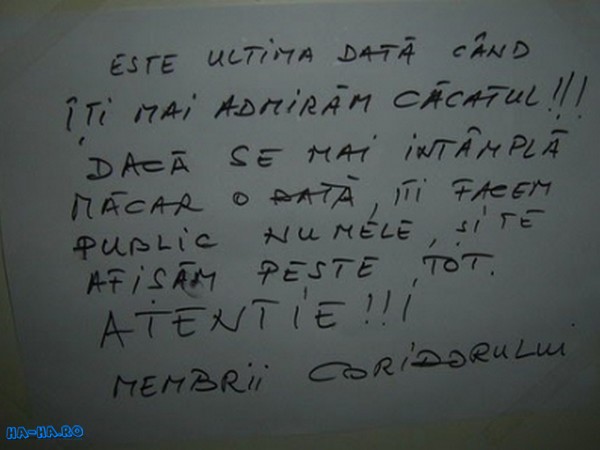 ESTE ULTIMA DATĂ CÂND
ÎȚI MAI ADMIRĂM CĂCATUL!!!
DACĂ SE MAI ÎNTÂMPLĂ
MĂCAR O DATĂ, ÎȚI FACEM
PUBLIC NUMELE, ȘI TE
AFIȘĂM PESTE TOT.
ATENTIE!!!
MEMBRII CORIDORULUI
HA-HA.RO